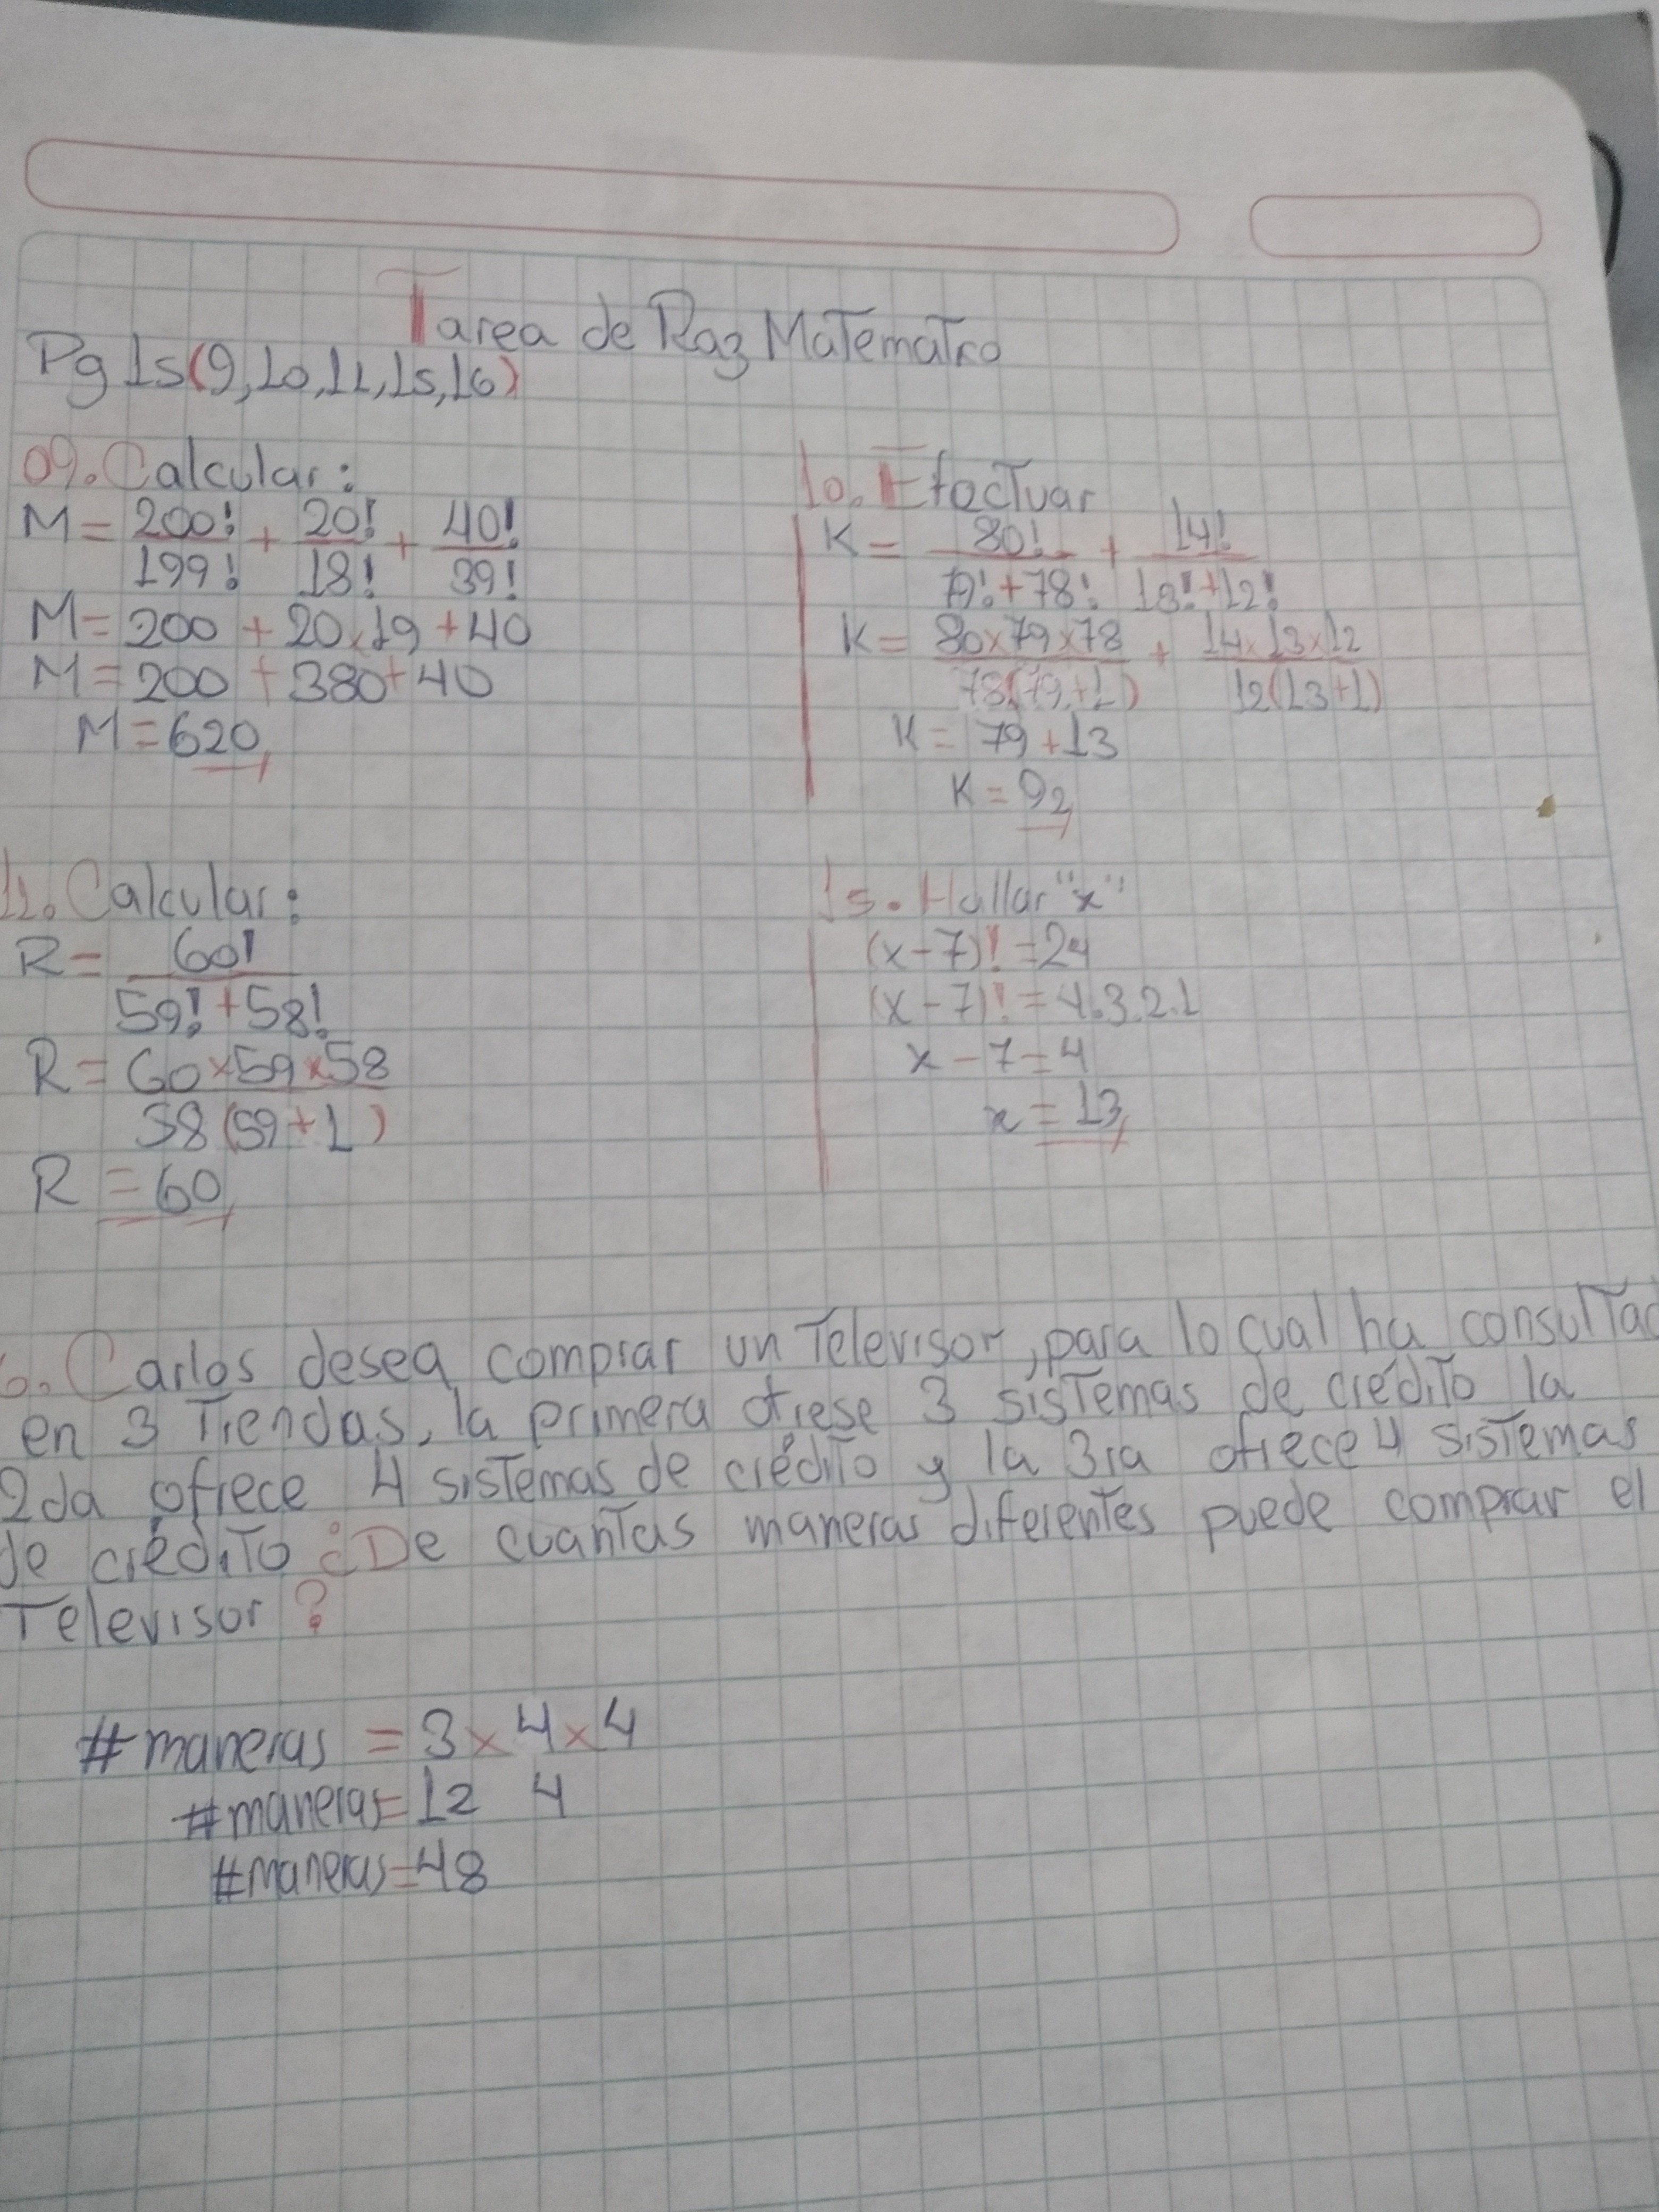 Tarea de Raz Matematico
Pg 15(9,10,11,15,16)
09. Calcular:
M = 200!/199! + 20!/18! + 40!/39!
M = 200 + 20x19 + 40
M = 200 + 380 + 40
M = 620
10. Efectuar
K = 80!/79!+78! + 14!/13!+12!
K = 80x79x78/78(79+1) + 14x13x12/12(13+1)
K = 79 + 13
K = 92
11. Calcular:
R = 60!/59!+58!
R = 60x59x58/58(59+1)
R = 60
15. Hallar "x"
(x-7)! = 24
(x-7)! = 4.3.2.1
x-7=4
x = 13
6. Carlos desea comprar un Televisor, para lo cual ha consultad
en 3 Tiendas, la primera ofrese 3 sistemas de crédito la
2da ofrece 4 sistemas de crédito y la 3ra ofrece 4 sistemas
de crédito ¿De cuantas maneras diferentes puede comprar el
Televisor?
#maneras = 3 x 4 x 4
#maneras = 12 4
#maneras = 48